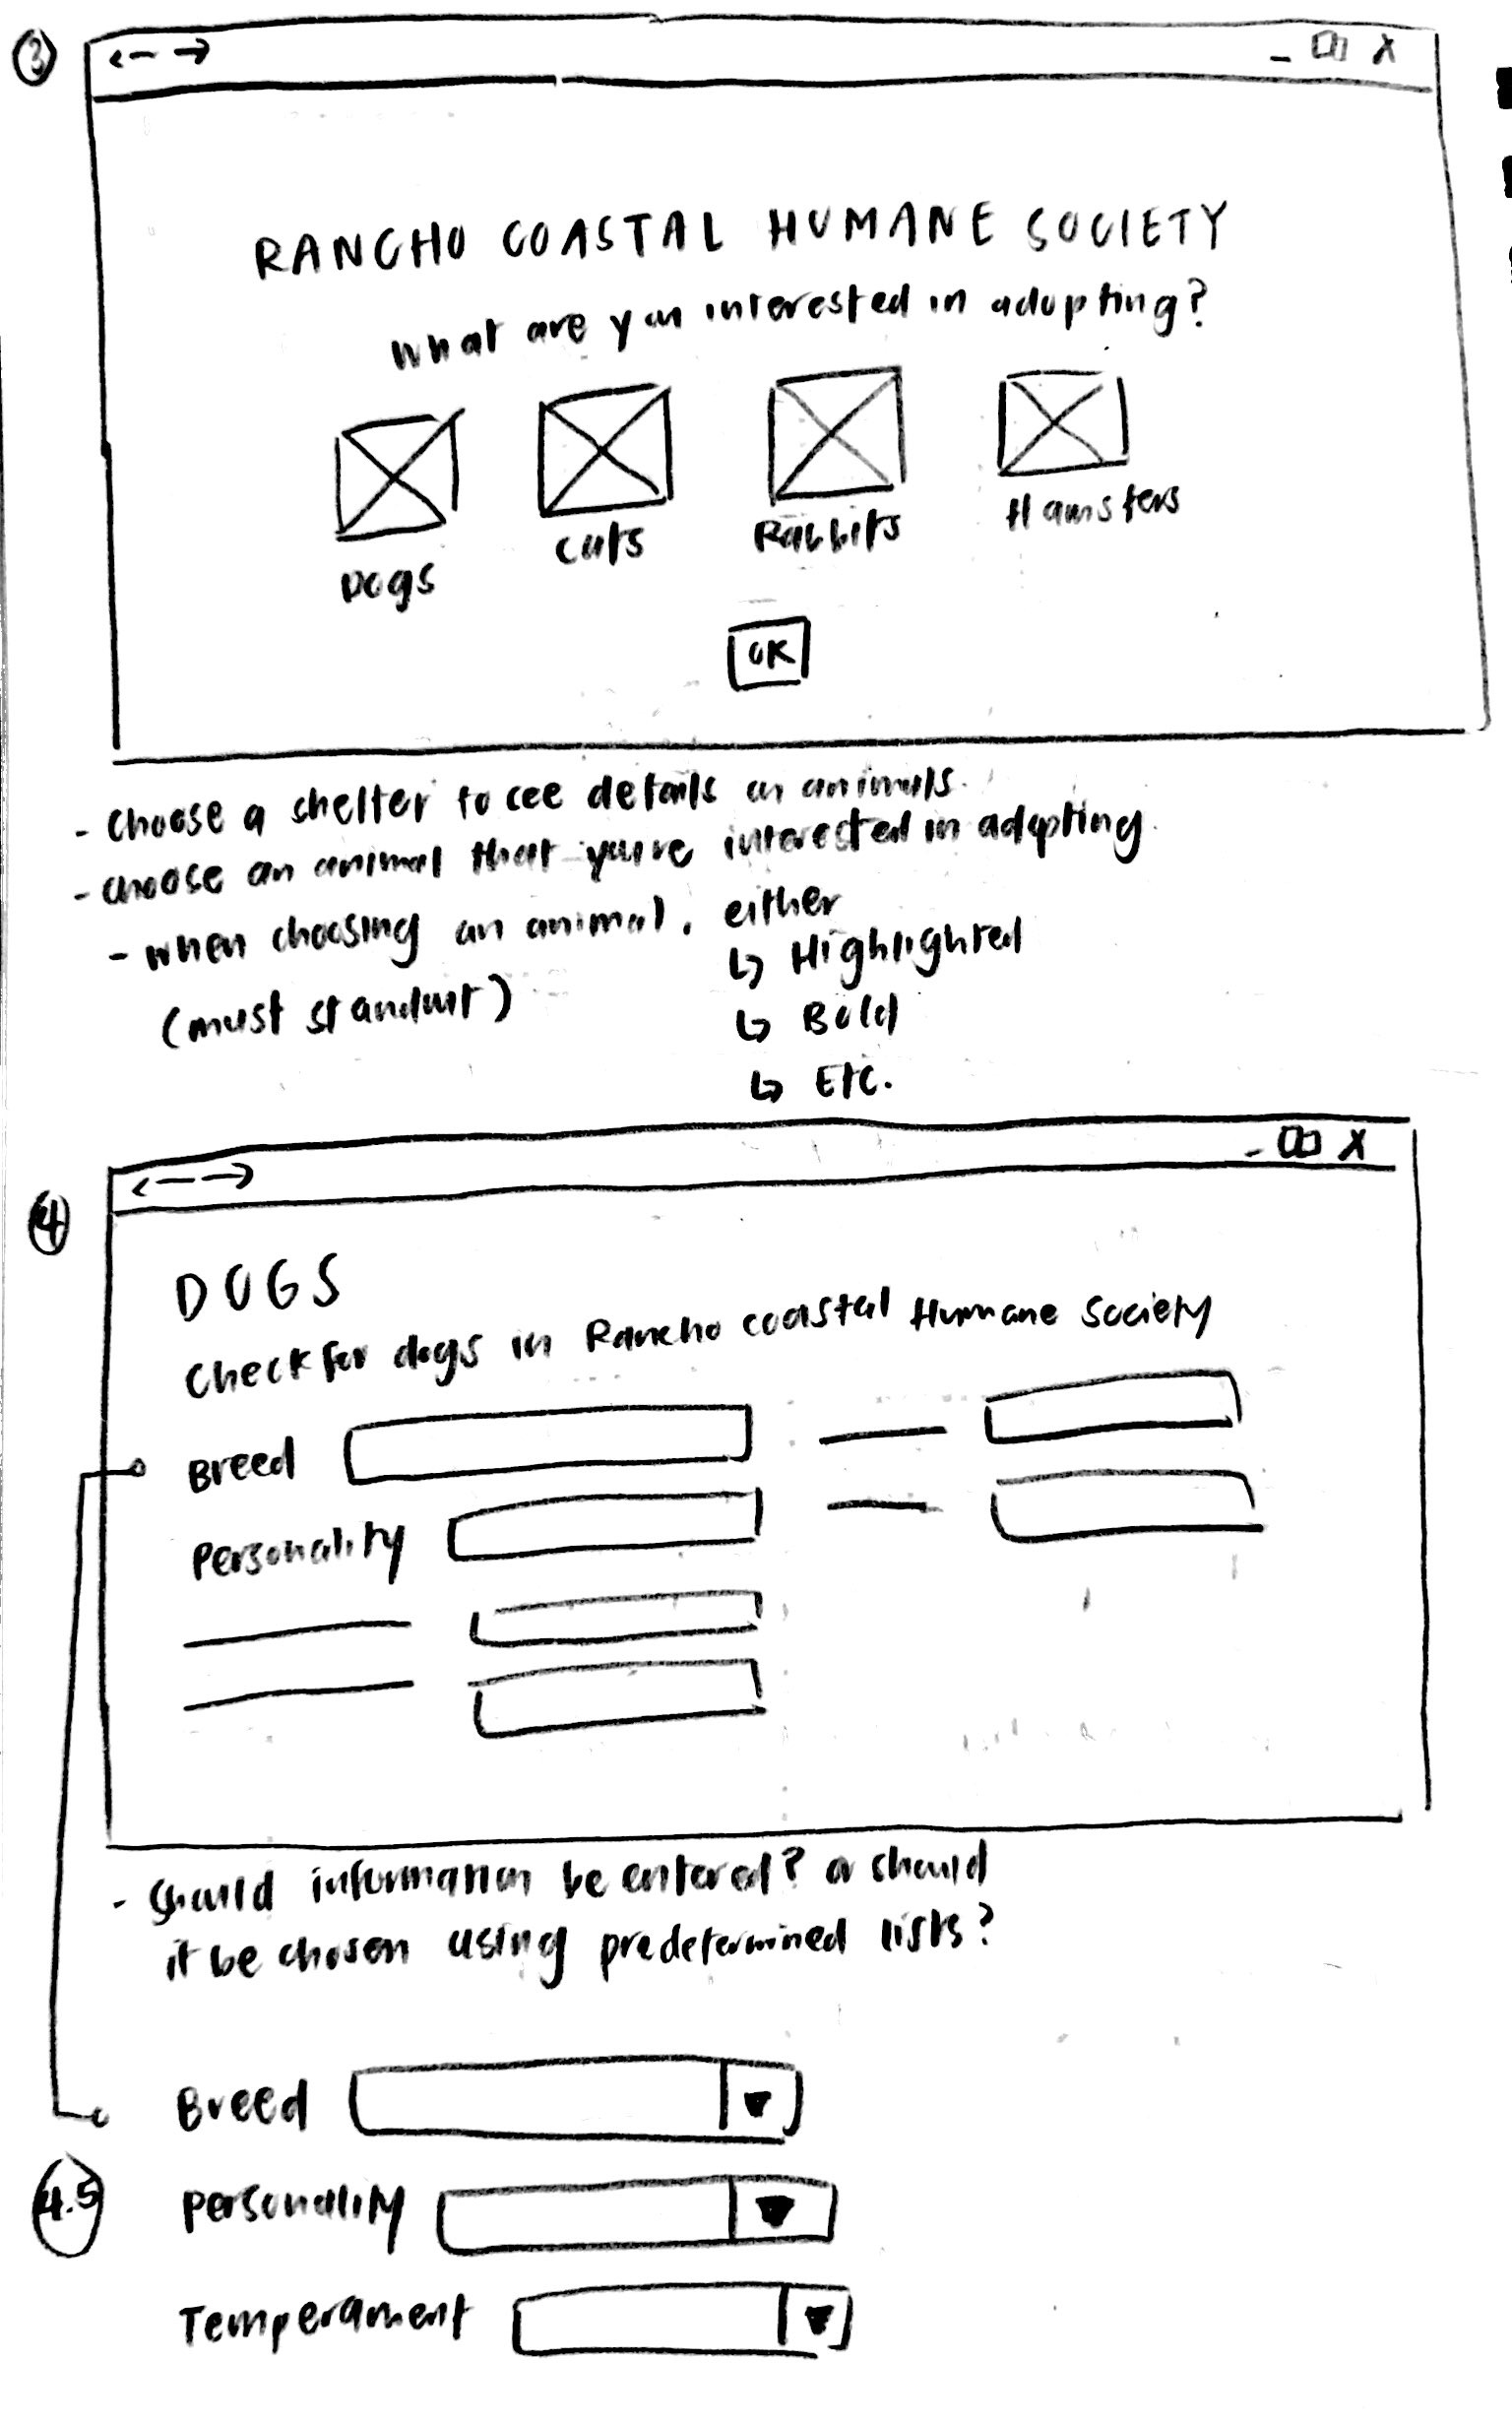 3
RANCHO COASTAL HUMANE SOCIETY
What are you interested in adopting?
Dogs Cats Rabbits Hamsters
OK
- Choose a shelter to see details on animals.
- Choose an animal that you're interested in adopting.
- When choosing an animal, either
(must standout)
↳ Highlighted
↳ Bold
↳ Etc.
4
DOGS
Check for dogs in Rancho coastal Humane Society
Breed
Personality
- Should information be entered? or should
it be chosen using predetermined lists?
Breed
4.5
Personality
Temperament